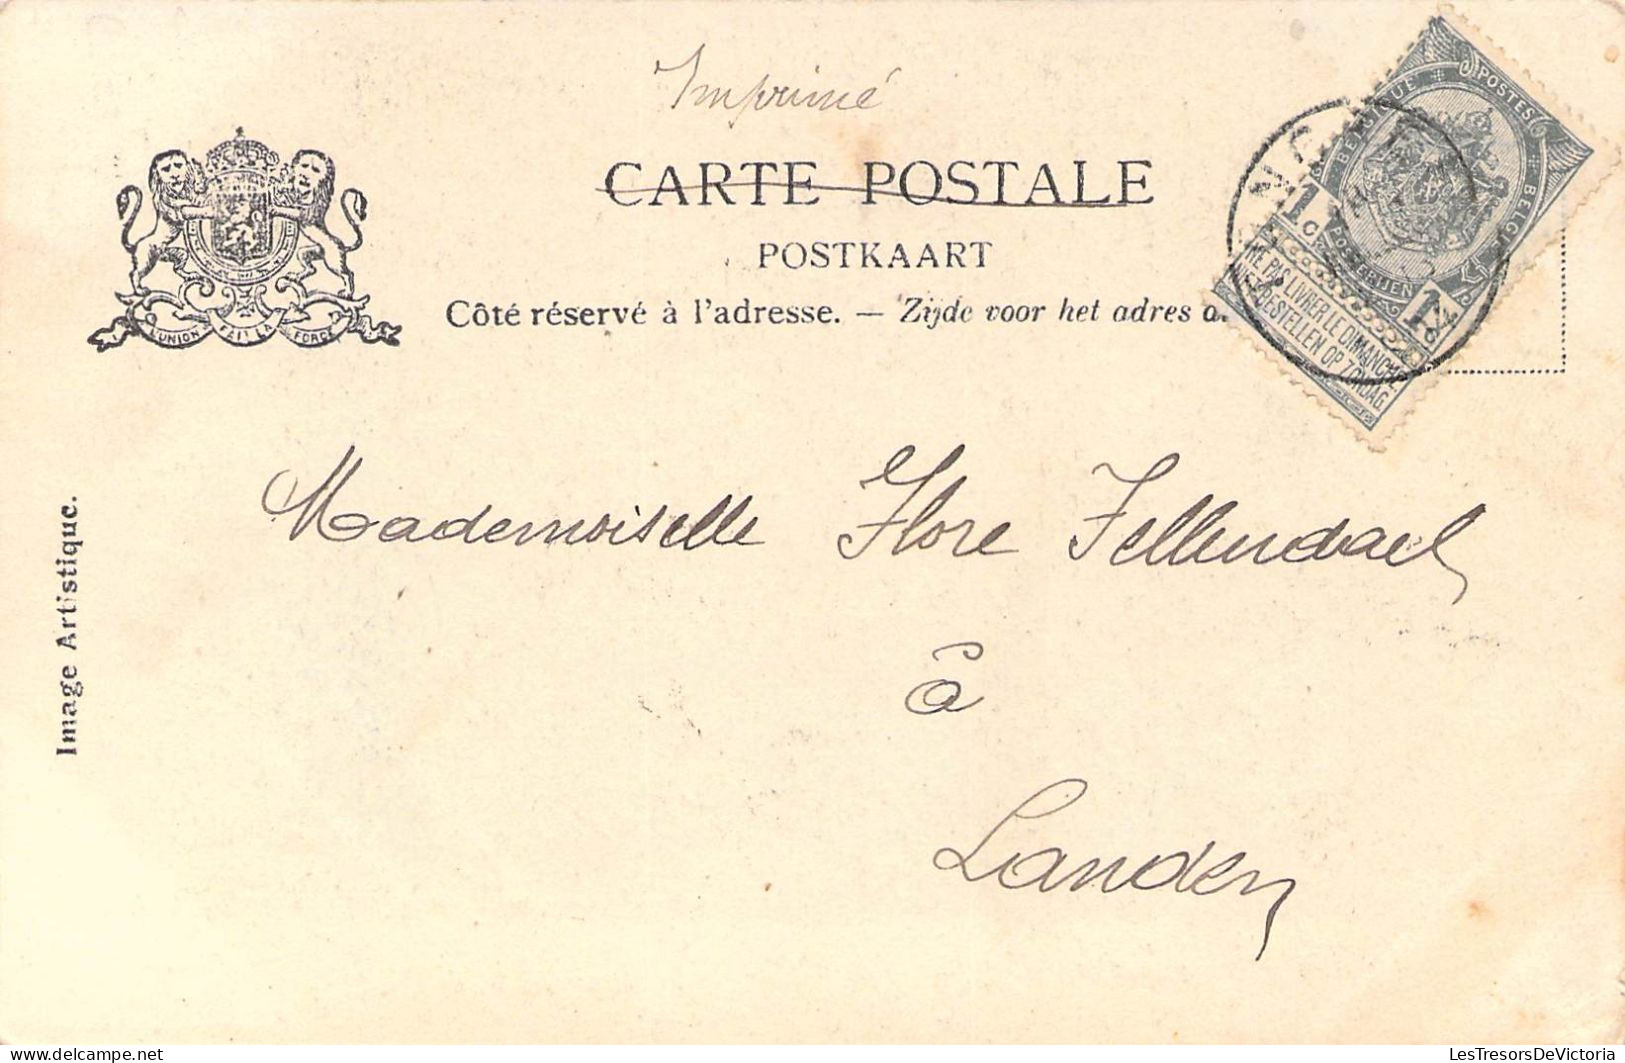 Imprimé
CARTE POSTALE
POSTKAART
Côté réservé à l'adresse. — Zijde voor het adres
L'UNION FAIT LA FORCE
BELGIQUE POSTES BELGIË POSTERIJEN
1c 1c
NE PAS LIVRER LE DIMANCHE.
NIET BESTELLEN OP ZONDAG.
Mademoiselle Flore Fellendael
à
Landen
Image Artistique.
delcampe.net
LesTresorsDeVictoria